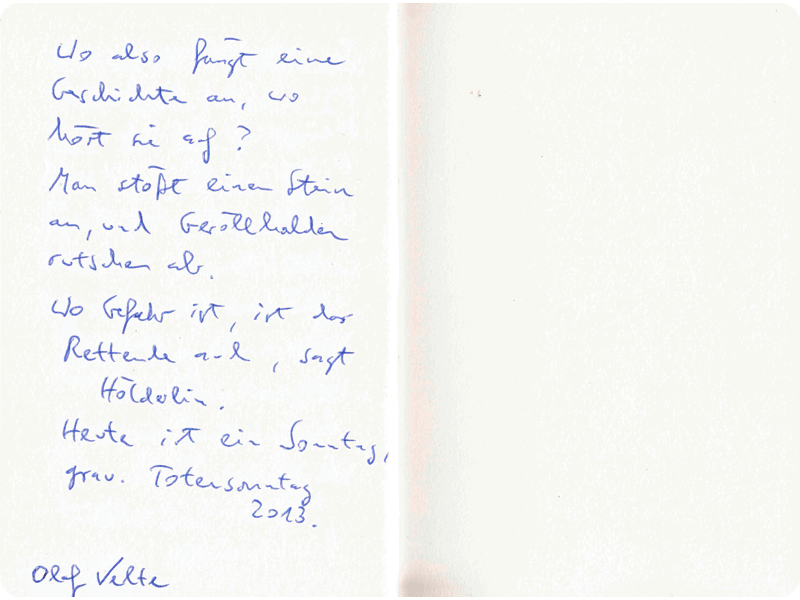 Wo also fängt eine
Geschichte an, wo
hört sie auf?
Man stößt einen Stein
an, und Geröllhalden
rutschen ab.
Wo Gefahr ist, ist das
Rettende auch, sagt
Hölderlin.
Heute ist ein Sonntag,
grau. Totensonntag
2013.
Olaf Velte